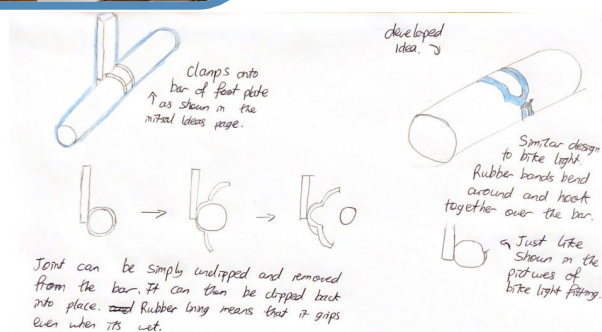 clamps onto
bar of foot plate
↑ as shown in the
initial ideas page.
developed
idea.
Similar design
to bike light.
Rubber bands bend
around and hook
together over the bar.
Just like
shown in the
pictures of
bike light fitting.
Joint can be simply unclipped and removed
from the bar. It can then be clipped back
into place. and Rubber lining means that it grips
even when its wet.